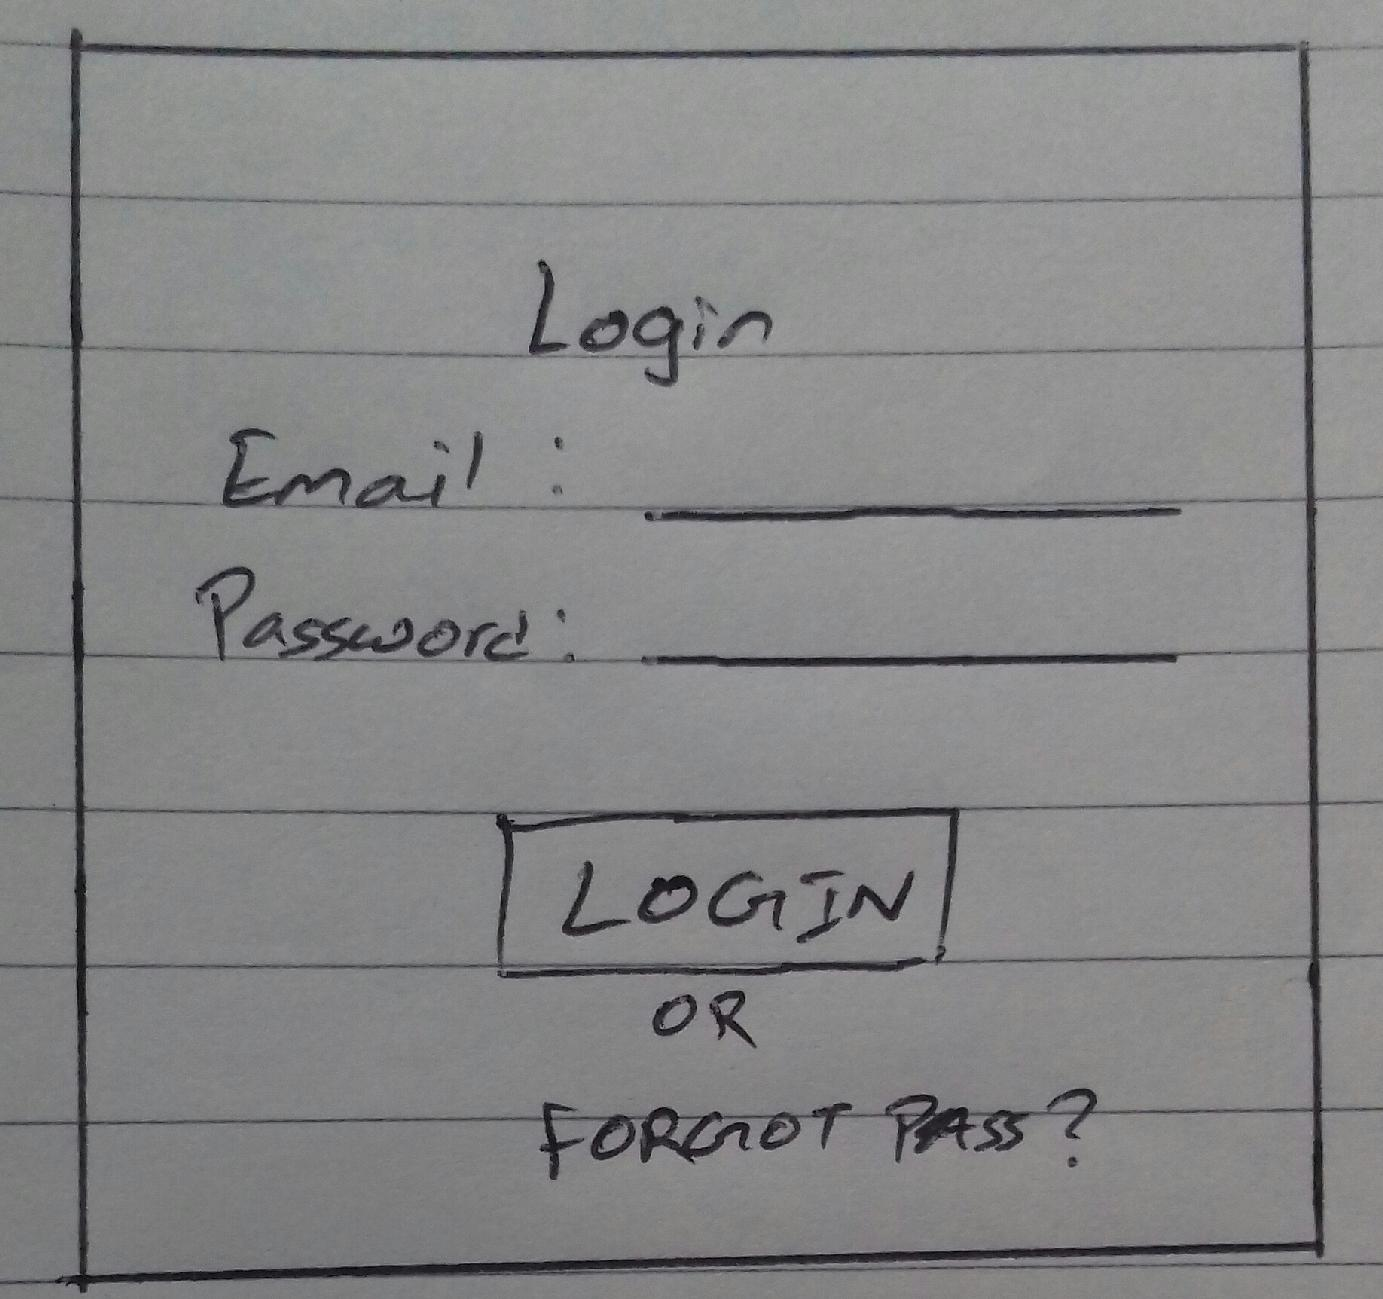 Login
Email :
Password :
LOGIN
OR
FORGOT PASS?